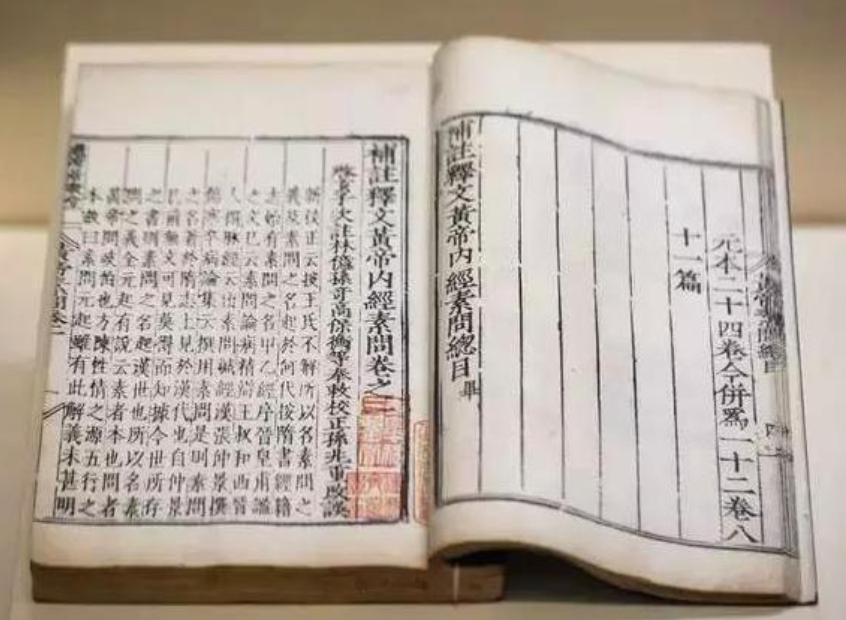 元本二十四卷今併爲一十二卷八
十一篇
補註釋文黃帝內經素問總目畢
補註釋文黃帝內經素問卷之一
啓玄子次註林億孫奇高保衡等奉敕校正孫兆重改誤
新校正云按王氏不解所以名素問之
義及素問之名起於何代按隋書經籍
志始有素問之名甲乙經序晉皇甫謐
之文已云素問論病精辯王叔和西晉
人撰脉經云出素問鍼經漢張仲景撰
傷寒卒病論集云撰用素問是則素問
之名著於隋志上見於漢代也自仲景
已前無文可見莫得而知據今世所存
之書則素問之名起漢世也所以名素
問之義全元起有說云素者本也問者
黃帝問岐伯也方陳性情之源五行之
本故曰素問元起雖有此解義未甚明